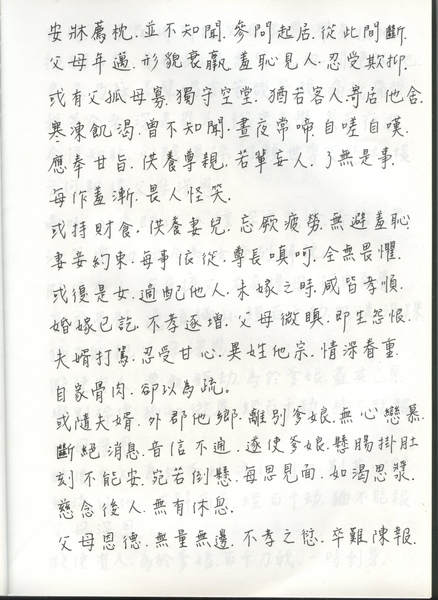 安牀薦枕.並不知聞.參問起居.從此間斷.
父母年邁.形貌衰羸.羞恥見人.忍受欺抑.
或有父孤母寡.獨守空堂.猶若客人.寄居他舍.
寒凍飢渴.曾不知聞.晝夜常啼.自嗟自嘆.
應奉甘旨.供養尊親.若輩妄人.了無是事.
每作羞漸.畏人怪笑.
或持財食.供養妻兒.忘厥疲勞.無避羞恥.
妻妾約束.每事依從.尊長嗔呵.全無畏懼.
或復是女.適配他人.未嫁之時.咸皆孝順.
婚嫁已訖.不孝逐增.父母微瞋.即生怨恨.
夫婿打罵.忍受甘心.異姓他宗.情深眷重.
自家骨肉.卻以為疏.
或隨夫婿.外郡他鄉.離別爹娘.無心戀慕.
斷絕消息.音信不通.遂使爹娘.懸腸掛肚.
刻不能安.宛若倒懸.每思見面.如渴思漿.
慈念後人.無有休息.
父母恩德.無量無邊.不孝之愆.卒難陳報.